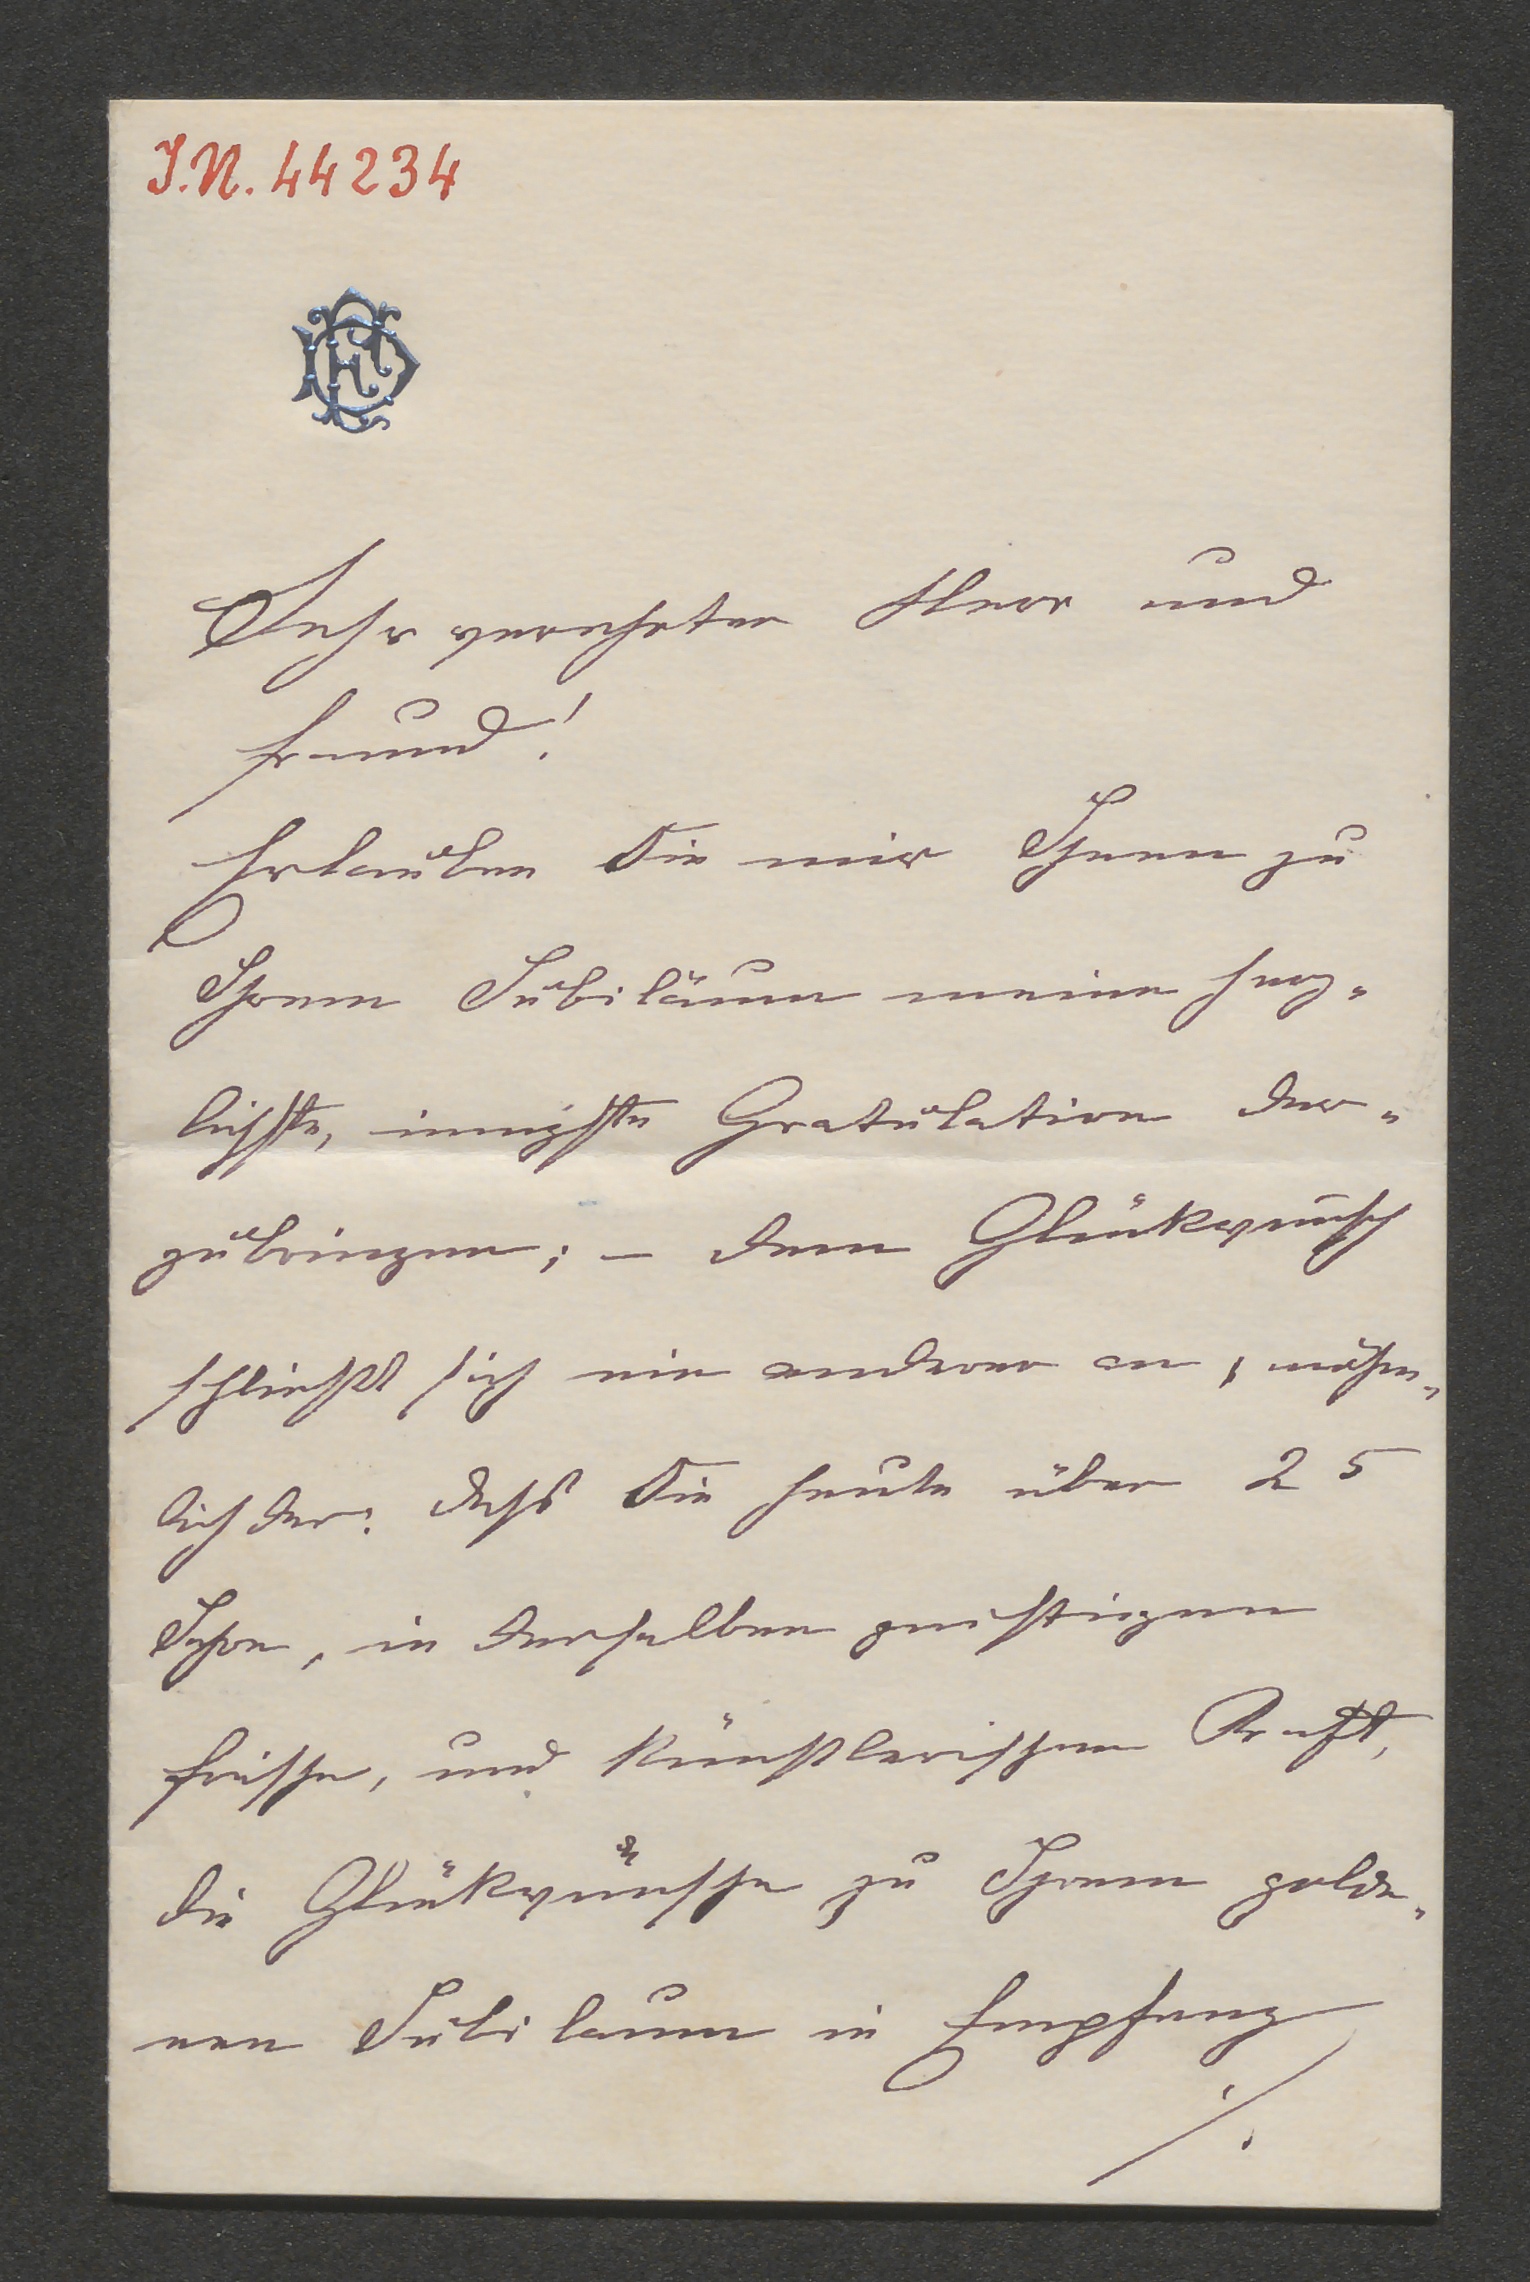 I.N. 44234
Sehr verehrter Herr und
Freund!
Erlauben Sie mir Ihnen zu
Ihrem Jubiläum meine herz„
lichste, innigste Gratulation dar„
zubringen; – dem Glükwunsch
schließt sich ein anderer an,
lich der: daß Sie heute über 25
Jahre, in derselben geistigen
frische, und künstlerischen Kraft,
die Glükwünsche zu Ihrem golde„
nen Jubilaum in Empfang
./.